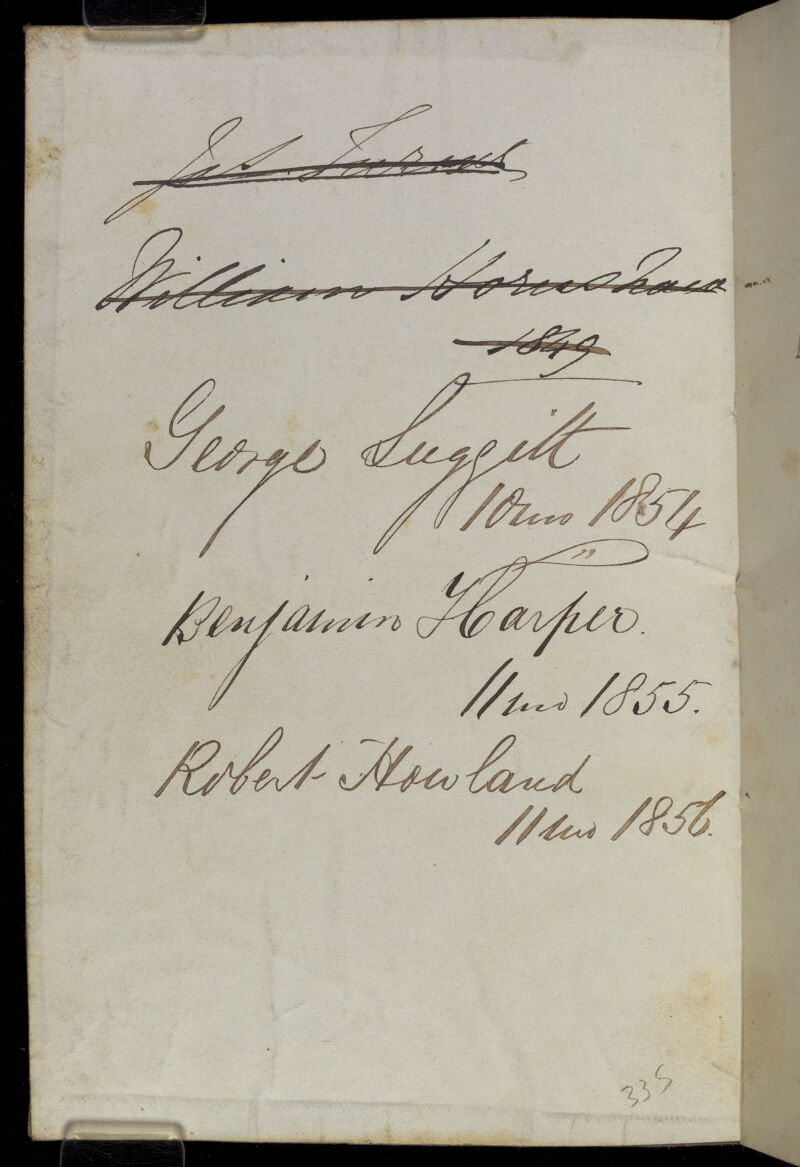 Jas.
William Hornshaw
1849
George Suggitt
10mo 1854
"
Benjamin Harper.
11mo 1855.
Robert Howland
11mo 1856.
335